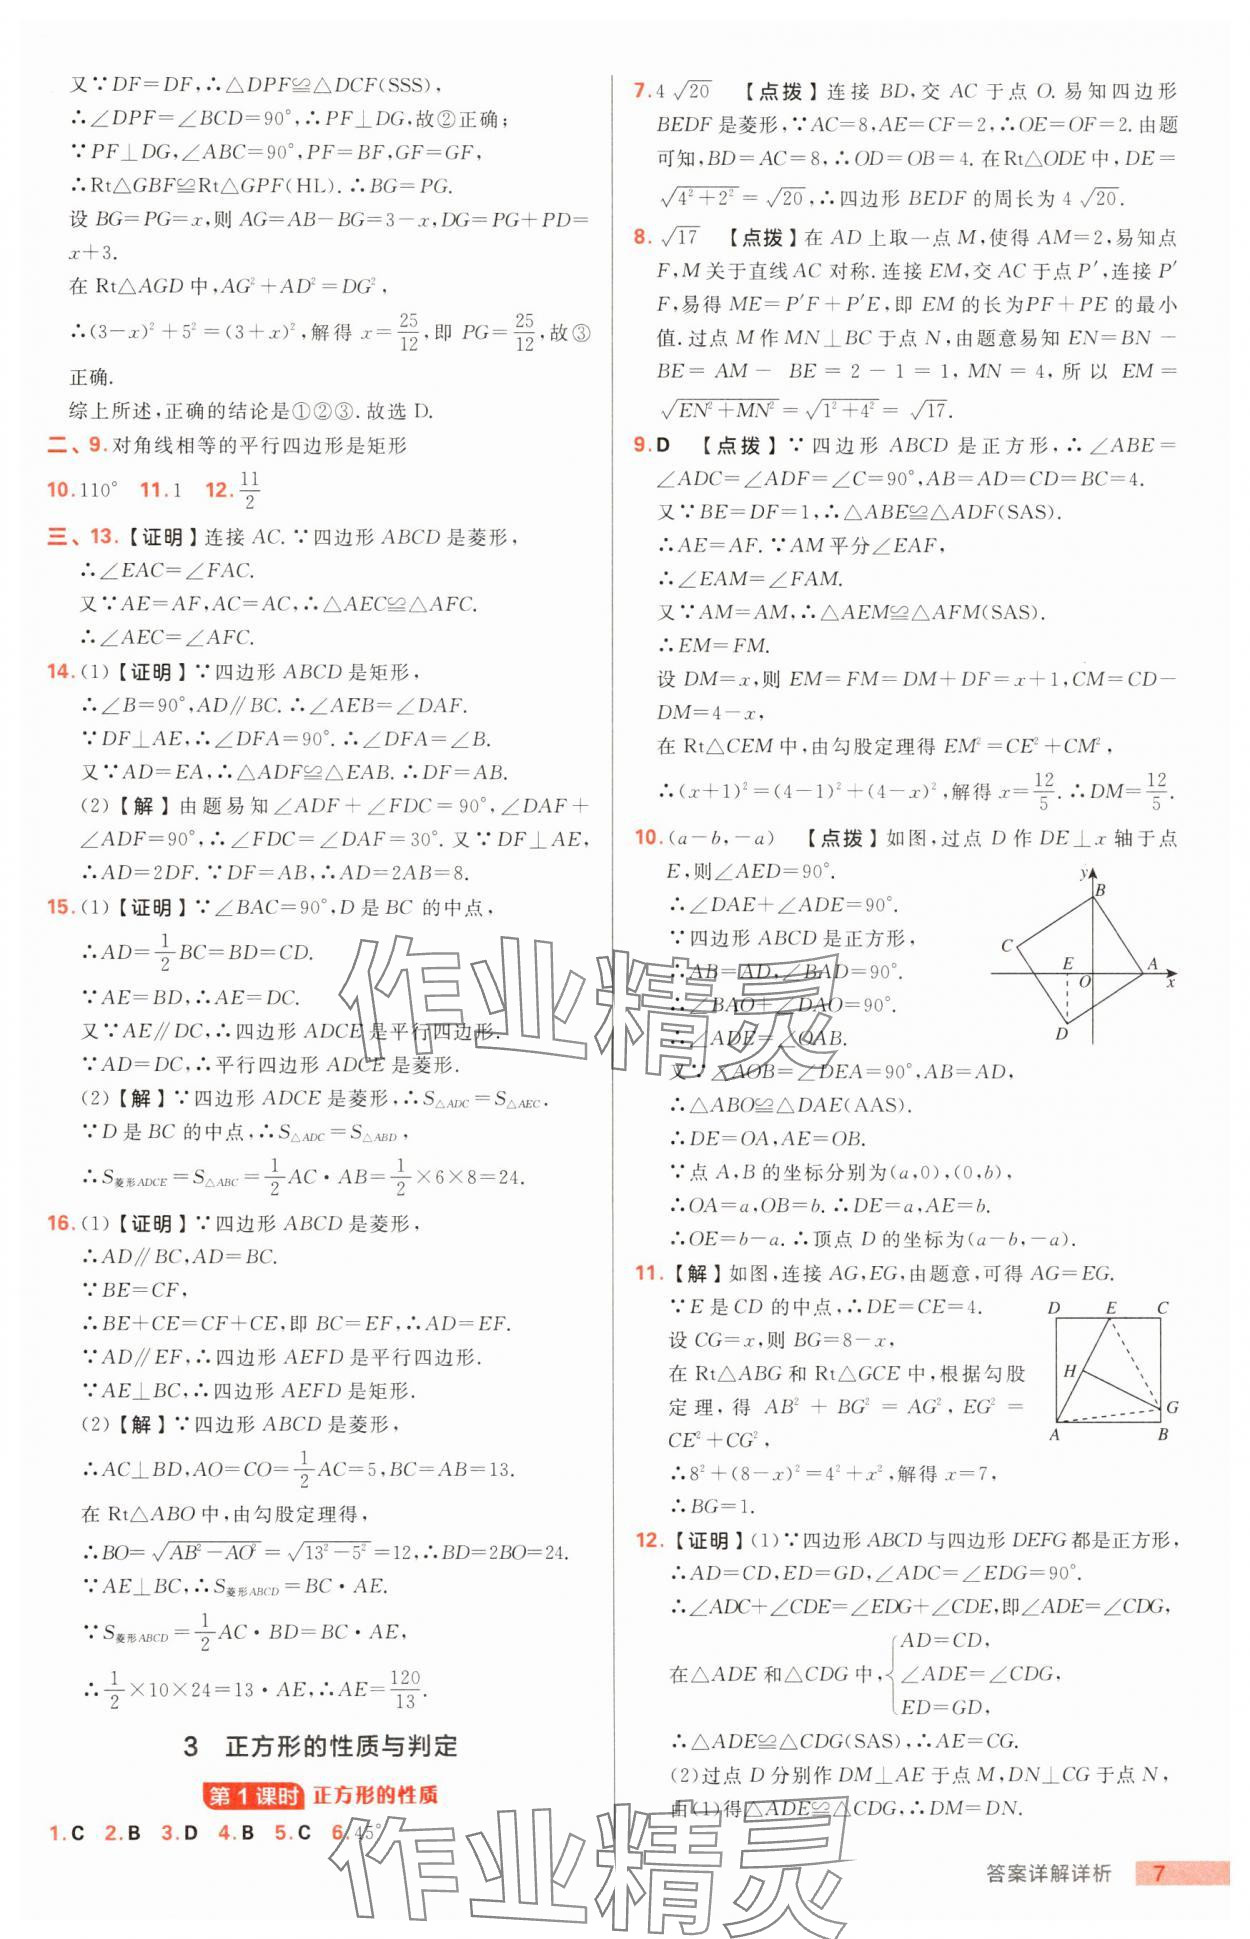 又∵DF=DF,∴△DPF≌△DCF(SSS),
∴∠DPF=∠BCD=90°,∴PF⊥DG,故②正确;
∵PF⊥DG,∠ABC=90°,PF=BF,GF=GF,
∴Rt△GBF≌Rt△GPF(HL).∴BG=PG.
设 BG=PG=x,则 AG=AB-BG=3-x,DG=PG+PD=
x+3.
在 Rt△AGD 中,AG²+AD²=DG²,
∴(3-x)²+5²=(3+x)²,解得 x=25/12,即 PG=25/12,故③
正确.
综上所述,正确的结论是①②③.故选 D.
二、9.对角线相等的平行四边形是矩形
10.110° 11.1 12.11/2
三、13.【证明】连接 AC.∵四边形 ABCD 是菱形,
∴∠EAC=∠FAC.
又∵AE=AF,AC=AC,∴△AEC≌△AFC.
∴∠AEC=∠AFC.
14.(1)【证明】∵四边形 ABCD 是矩形,
∴∠B=90°,AD∥BC.∴∠AEB=∠DAF.
∵DF⊥AE,∴∠DFA=90°.∴∠DFA=∠B.
又∵AD=EA,∴△ADF≌△EAB.∴DF=AB.
(2)【解】由题易知∠ADF+∠FDC=90°,∠DAF+
∠ADF=90°,∴∠FDC=∠DAF=30°.又∵DF⊥AE,
∴AD=2DF.∵DF=AB,∴AD=2AB=8.
15.(1)【证明】∵∠BAC=90°,D 是 BC 的中点,
∴AD=1/2BC=BD=CD.
∵AE=BD,∴AE=DC.
又∵AE∥DC,∴四边形 ADCE 是平行四边形.
∵AD=DC,∴平行四边形 ADCE 是菱形.
(2)【解】∵四边形 ADCE 是菱形,∴S△ADC=S△AEC.
∵D 是 BC 的中点,∴S△ADC=S△ABD,
∴S菱形ADCE=S△ABC=1/2AC·AB=1/2×6×8=24.
16.(1)【证明】∵四边形 ABCD 是菱形,
∴AD∥BC,AD=BC.
∵BE=CF,
∴BE+CE=CF+CE,即 BC=EF,∴AD=EF.
∵AD∥EF,∴四边形 AEFD 是平行四边形.
∵AE⊥BC,∴四边形 AEFD 是矩形.
(2)【解】∵四边形 ABCD 是菱形,
∴AC⊥BD,AO=CO=1/2AC=5,BC=AB=13.
在 Rt△ABO 中,由勾股定理得,
∴BO=√(AB²-AO²)=√(13²-5²)=12,∴BD=2BO=24.
∵AE⊥BC,∴S菱形ABCD=BC·AE.
∵S菱形ABCD=1/2AC·BD=BC·AE,
∴1/2×10×24=13·AE,∴AE=120/13.
3 正方形的性质与判定
第1课时 正方形的性质
1.C 2.B 3.D 4.B 5.C 6.45°
7.4√20 【点拨】连接 BD,交 AC 于点 O.易知四边形
BEDF 是菱形,∵AC=8,AE=CF=2,∴OE=OF=2.由题
可知,BD=AC=8,∴OD=OB=4.在Rt△ODE 中,DE=
√(4²+2²)=√20,∴四边形 BEDF 的周长为 4√20.
8.√17 【点拨】在 AD 上取一点 M,使得 AM=2,易知点
F,M 关于直线 AC 对称.连接 EM,交 AC 于点P′,连接 P′
F,易得 ME=P′F+P′E,即 EM 的长为PF+PE 的最小
值.过点 M 作 MN⊥BC 于点 N,由题意易知 EN=BN-
BE=AM-BE=2-1=1,MN=4,所以 EM=
√(EN²+MN²)=√(1²+4²)=√17.
9.D 【点拨】∵四边形 ABCD 是正方形,∴∠ABE=
∠ADC=∠ADF=∠C=90°,AB=AD=CD=BC=4.
又∵BE=DF=1,∴△ABE≌△ADF(SAS).
∴AE=AF.∵AM平分∠EAF,
∴∠EAM=∠FAM.
又∵AM=AM,∴△AEM≌△AFM(SAS).
∴EM=FM.
设 DM=x,则 EM=FM=DM+DF=x+1,CM=CD-
DM=4-x,
在 Rt△CEM 中,由勾股定理得 EM²=CE²+CM²,
∴(x+1)²=(4-1)²+(4-x)²,解得 x=12/5.∴DM=12/5.
10.(a-b,-a) 【点拨】如图,过点 D 作 DE⊥x 轴于点
E,则∠AED=90°.
∴∠DAE+∠ADE=90°.
∵四边形 ABCD 是正方形,
∴AB=AD,∠BAD=90°.
∴∠BAO+∠DAO=90°.
∴∠ADE=∠OAB.
又∵∠AOB=∠DEA=90°,AB=AD,
∴△ABO≌△DAE(AAS).
∴DE=OA,AE=OB.
∵点 A,B 的坐标分别为(a,0),(0,b),
∴OA=a,OB=b.∴DE=a,AE=b.
∴OE=b-a.∴顶点 D 的坐标为(a-b,-a).
y
B
C
E
O
A
x
D
11.【解】如图,连接 AG,EG,由题意,可得 AG=EG.
∵E 是 CD 的中点,∴DE=CE=4.
设 CG=x,则 BG=8-x,
在 Rt△ABG 和 Rt△GCE 中,根据勾股
定理,得 AB²+BG²=AG²,EG²=
CE²+CG²,
∴8²+(8-x)²=4²+x²,解得 x=7,
∴BG=1.
D E C
H
G
A B
12.【证明】(1)∵四边形 ABCD 与四边形 DEFG 都是正方形,
∴AD=CD,ED=GD,∠ADC=∠EDG=90°.
∴∠ADC+∠CDE=∠EDG+∠CDE,即∠ADE=∠CDG,
AD=CD,
在△ADE 和△CDG 中,{∠ADE=∠CDG,
ED=GD,
∴△ADE≌△CDG(SAS),∴AE=CG.
(2)过点 D 分别作 DM⊥AE 于点 M,DN⊥CG 于点 N,
由(1)得△ADE≌△CDG,∴DM=DN.
答案详解详析 7
作业精灵
作业精灵